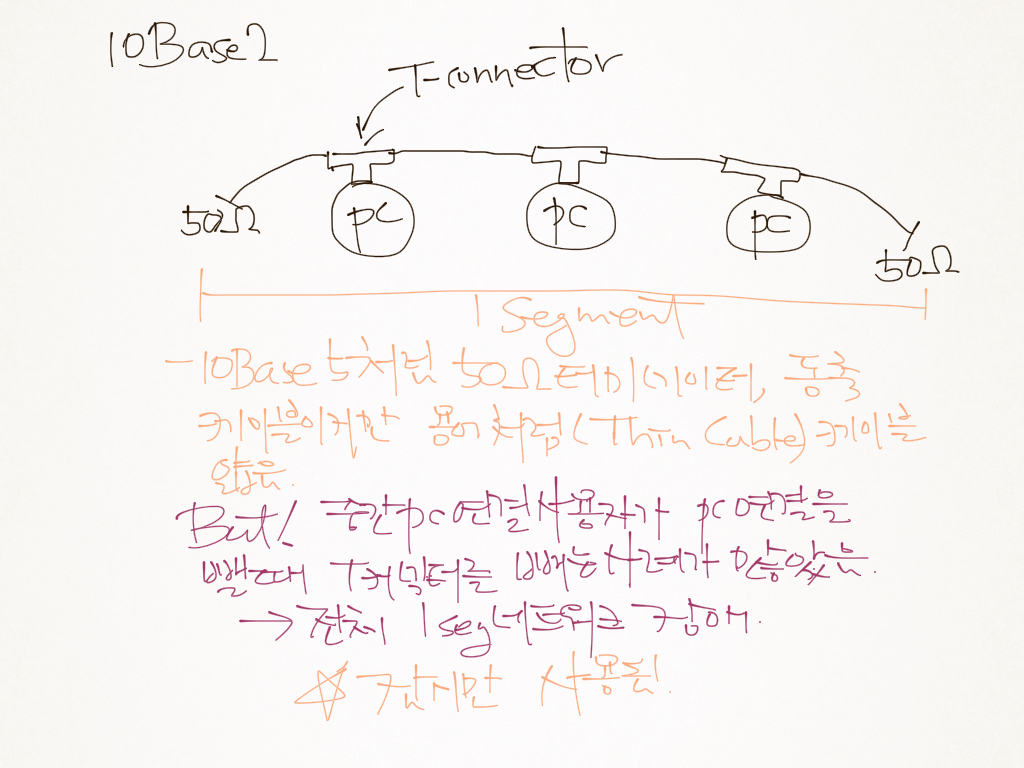 10Base2
T-connector
50Ω PC PC PC 50Ω
1 Segment
- 10Base 5처럼 50Ω 터미네이터, 동축
케이블이지만 용어처럼 (Thin Cable) 케이블
얇음.
But! 중간 PC 연결 사용자가 PC 연결을
뺄때 T커넥터를 빼는 사례가 많았음.
→ 전체 1 seg 네트워크 장애.
☆ 잠시만 사용됨!